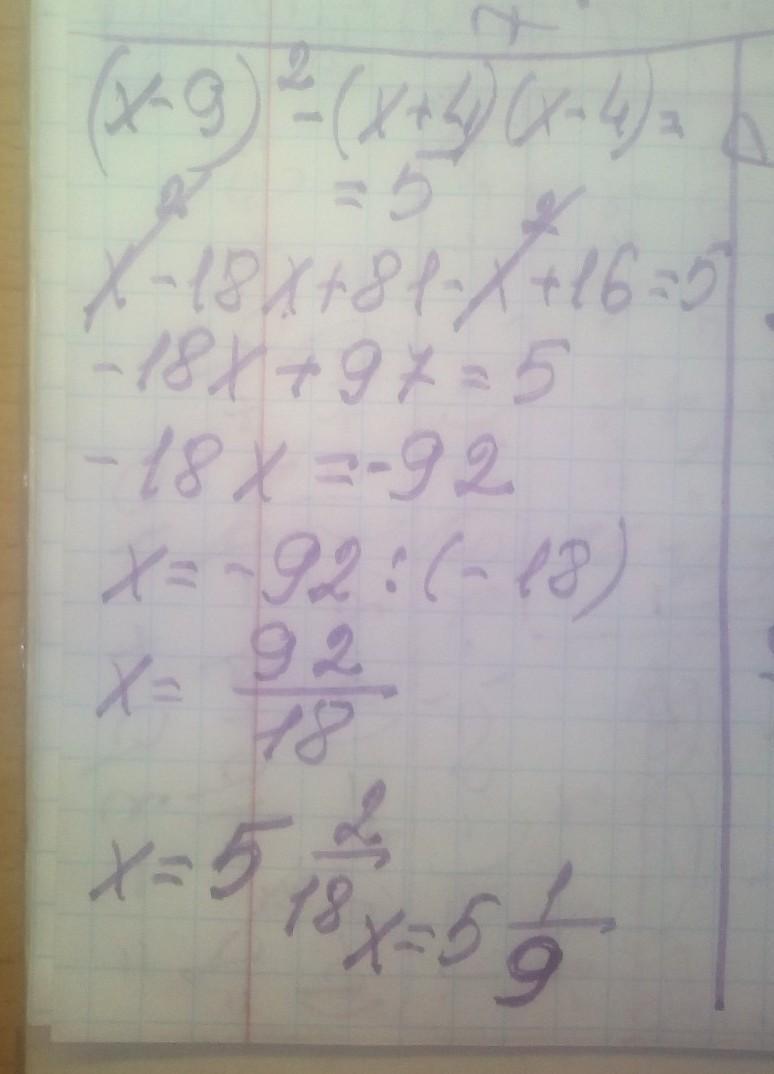 7
(x-9)²-(x+4)(x-4)=
=5
x²-18x+81-x²+16=5
-18x+97=5
-18x=-92
x=-92:(-18)
x=92/18
x=5 2/18
x=5 1/9